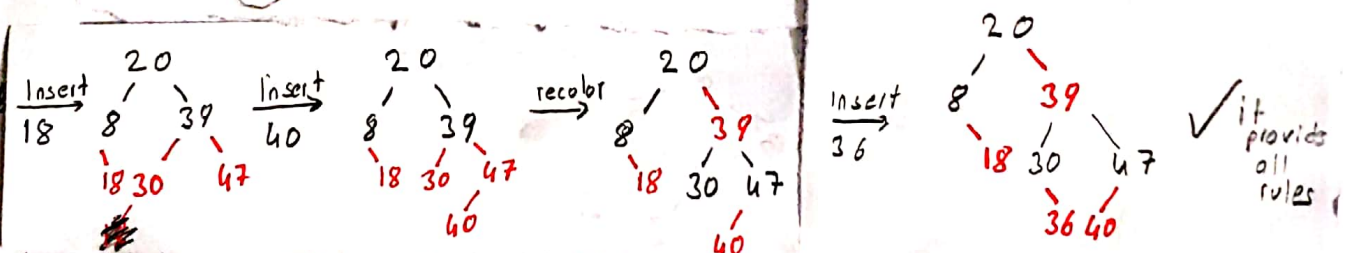 Insert
18
20
8 39
18 30 47
Insert
40
20
8 39
18 30 47
40
recolor
20
8 39
18 30 47
40
Insert
36
20
8 39
18 30 47
36 40
it
provids
all
rules